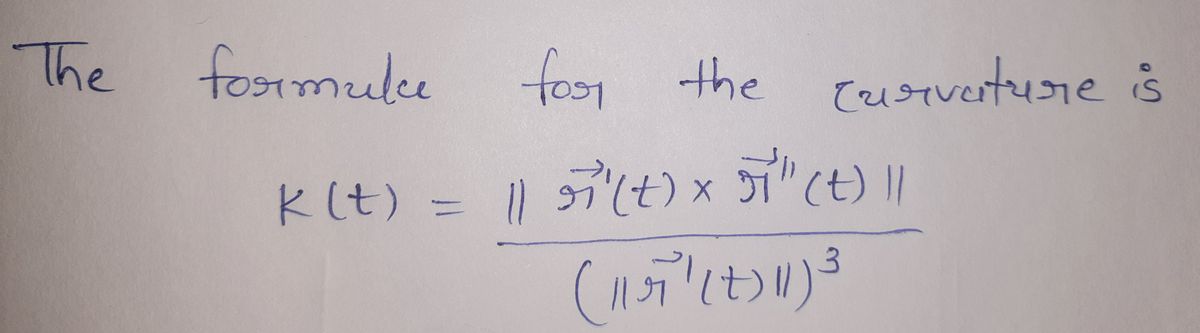 The formula for the curvature is
K(t) = || r⃗'(t) × r⃗''(t) ||
(||r⃗'(t)||)³